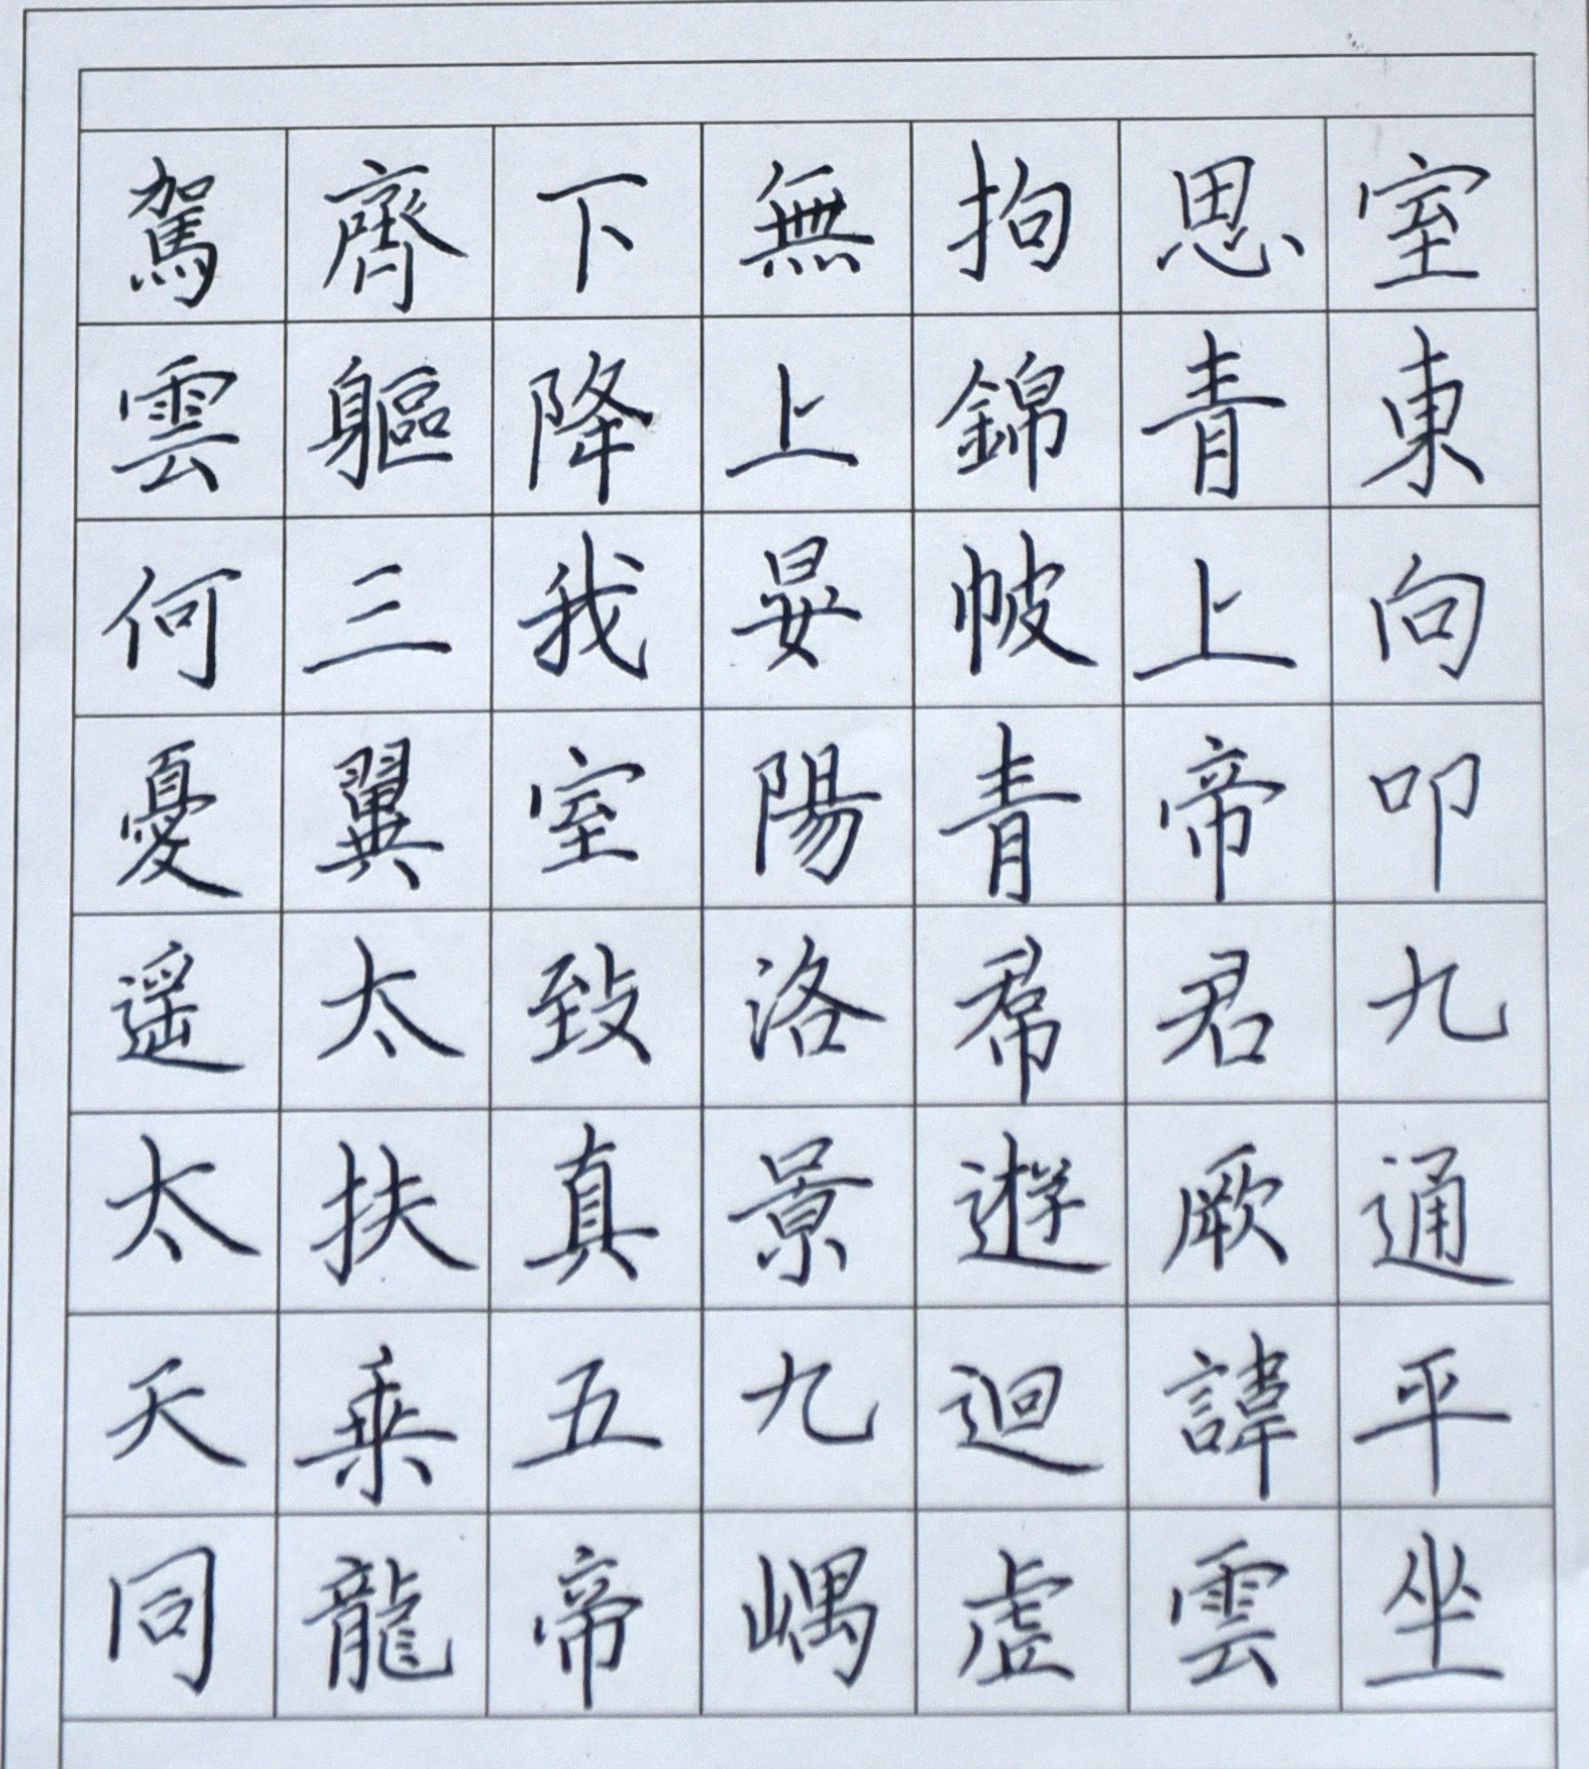 室東向叩九通平坐
思青上帝君厥諱雲
拘錦帔青帬遊迴虚
無上晏陽洛景九嵎
下降我室致真五帝
齊軀三翼太扶乗龍
駕雲何憂遥太天同